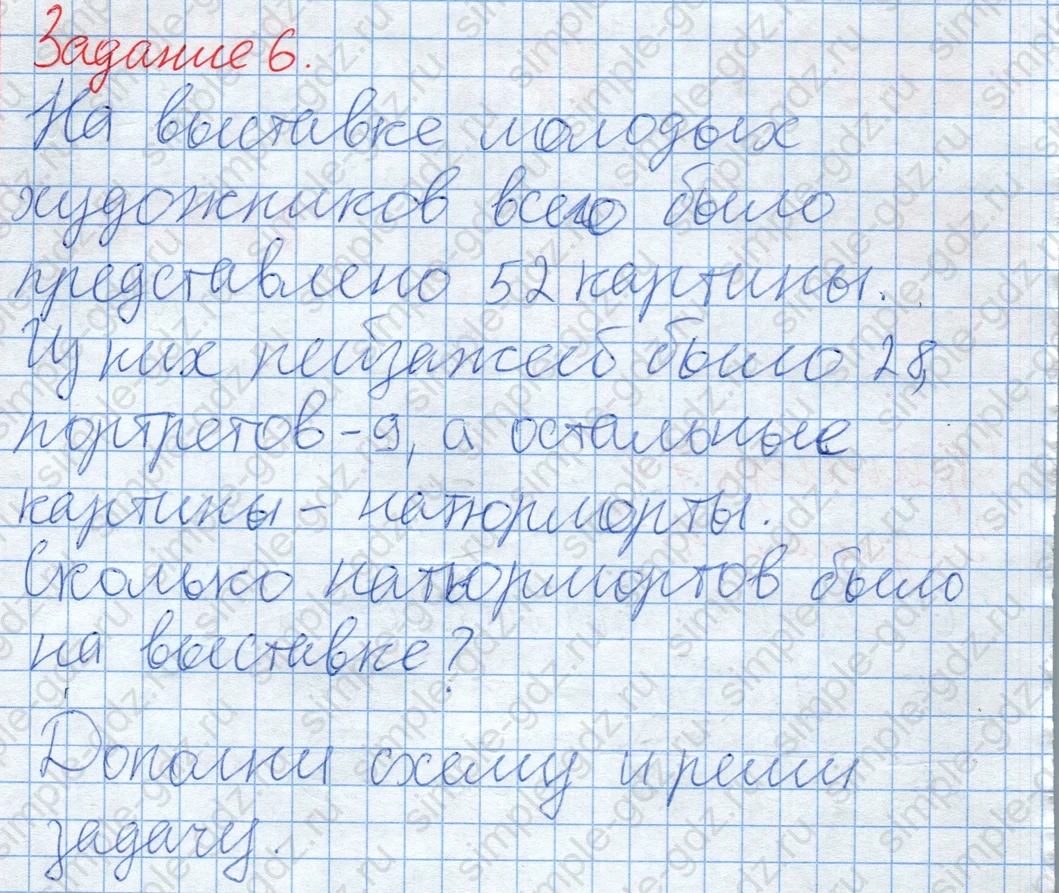 Задание 6.
На выставке молодых
художников всего было
представлено 52 картины.
Из них пейзажей было 28,
портретов - 9, а остальные
картины - натюрморты.
Сколько натюрмортов было
на выставке?
Дополни схему и реши
задачу.